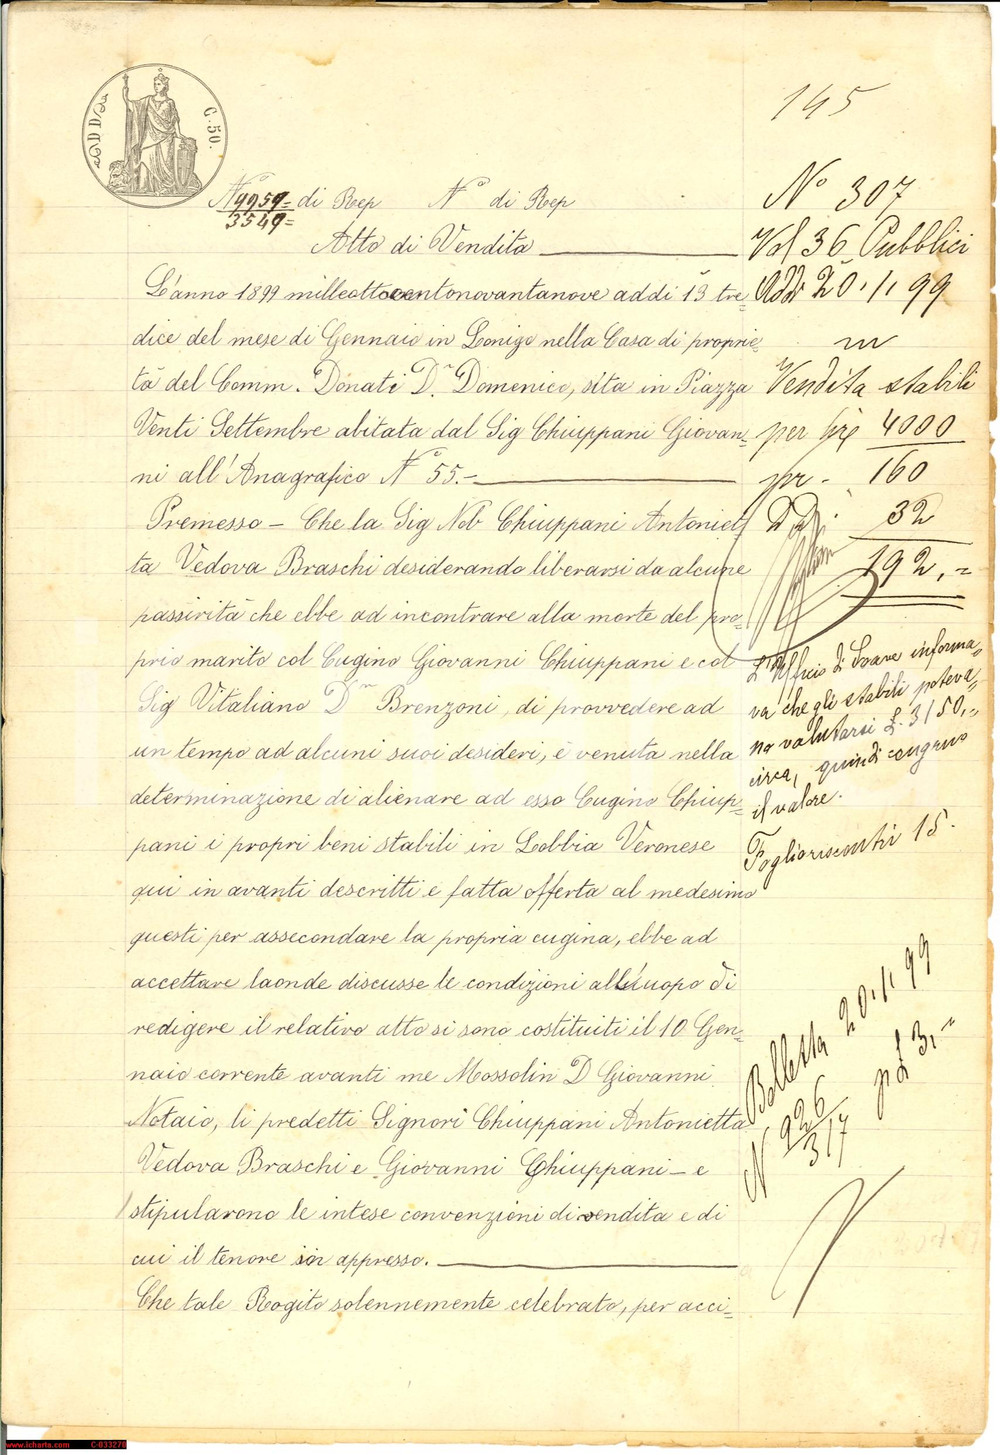 145
C. 50.
N° 9959= di Rep N° di Rep
3549=
Atto di Vendita
L'anno 1899 milleottocentonovantanove addì 13 tre-
dice del mese di Gennaio in Lonigo nella Casa di proprie-
tà del Comm. Donati Dr. Domenico, sita in Piazza
Venti Settembre abitata dal Sig Chiuppani Giovan-
ni all'Anagrafico N° 55.-
Premesso - Che la Sig Nob Chiuppani Antoniet-
ta Vedova Braschi desiderando liberarsi da alcune
passività che ebbe ad incontrare alla morte del pro-
prio marito col Cugino Giovanni Chiuppani e col
Sig Vitaliano Dr Brenzoni, di provvedere ad
un tempo ad alcuni suoi desideri, è venuta nella
determinazione di alienare ad esso Cugino Chiup-
pani i propri beni stabili in Lobbia Veronese
qui in avanti descritti e fatta offerta al medesimo
questi per assecondare la propria cugina, ebbe ad
accettare laonde discusse le condizioni all'uopo di
redigere il relativo atto si sono costituiti il 10 Gen-
naio corrente avanti me Mossolin D Giovanni
Notaio, li predetti Signori Chiuppani Antonietta
Vedova Braschi e Giovanni Chiuppani - e
stipularono le intese convenzioni di vendita e di
cui il tenore in appresso.
Che tale Rogito solennemente celebrato, per acci-
N° 307
Vol 36 Pubblici
Addì 20.1.99
Vendita stabili
per lire 4000
pr - 160
32
192.=
L'Ufficio di Soave informa-
va che gli stabili poteva-
no valutarsi £. 3150,=
circa, quindi congruo
il valore.
Bolletta 20.1.99
N 926
317
p £ 3.=
www.icharta.com C-033270